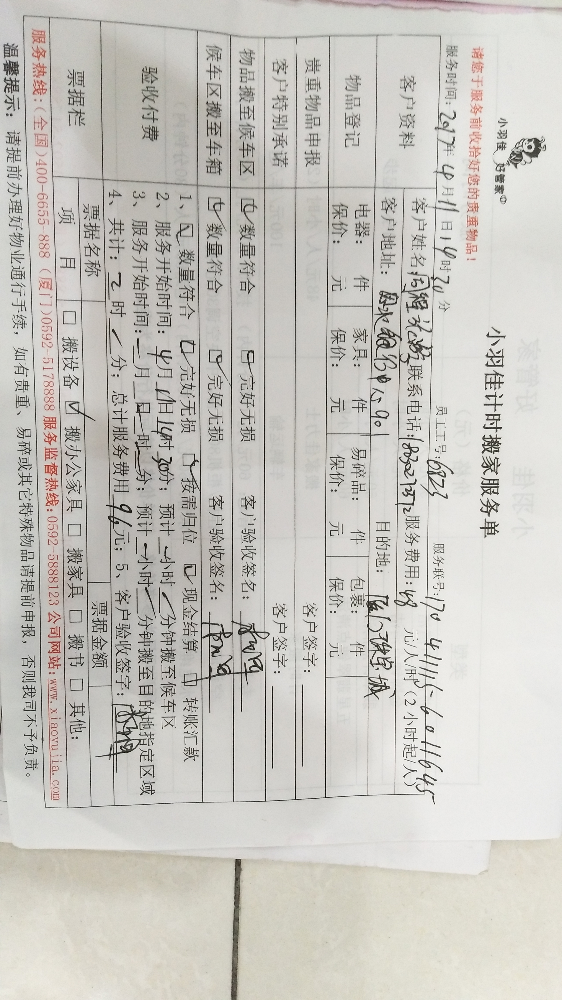 请您于服务前收拾好您的贵重物品！
小羽佳 好管家
小羽佳计时搬家服务单
服务时间：2017年4月11日14时30分 员工工号：6823 服务联号：
客户资料
客户姓名： 联系电话： 服务费用：48元/人/时（2小时起/人）
客户地址： 目的地：
物品登记
电器： 件 家具： 件 易碎品： 件 包裹： 件
保价： 元 保价： 元 保价： 元 保价： 元
贵重物品申报 客户签字：
客户特别承诺 客户签字：
物品搬至候车区 数量符合 完好无损 客户验收签名：
候车区搬至车箱 数量符合 完好无损 客户验收签名：
验收付费
1、数量符合 完好无损 按需归位 现金结算 转账汇款
2、服务开始时间：4月11日14时30分；预计 小时 分钟搬至候车区
3、服务开始时间： 月 日 时 分；预计 小时 分钟搬至目的地指定区域
4、共计：2时 分；总计服务费用96元；5、客户验收签字：
票据栏
票据名称 票据金额
项目 搬设备 搬办公家具 搬家具 搬书 其他：
服务热线：(全国)400-6655 888 (厦门)0592-5178888 服务监督热线：0592-5888123 公司网站：www.xiaoyujia.com
温馨提示：请提前办理好物业通行手续，如有贵重、易碎或其它特殊物品请提前申报，否则我司不予负责。